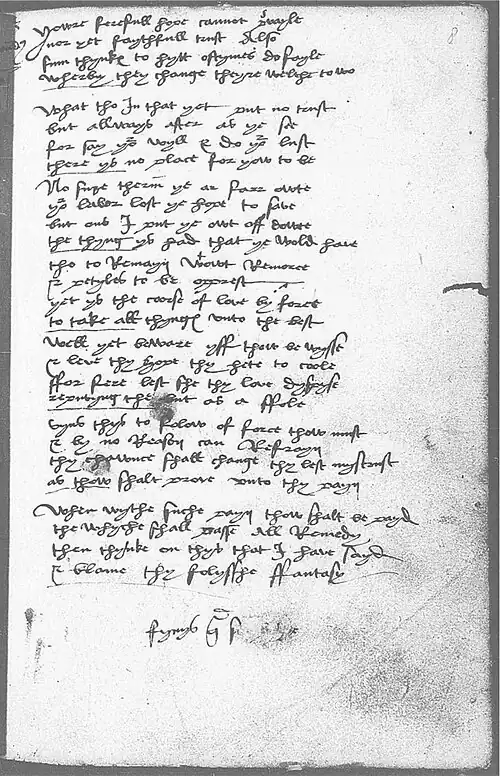 Yowre ferefull hope cannot prvayle
nor yet faythfull trust Also
sum thynke to hytt oftymes do fayle
wherby they change theyre welthe to wo
What tho In that yet put no trust
but allways after as ye see
for say yor wyll & do yor lust
there ys no place for yow to be
No sure therin ye ar farr owte
yor labor lost ye hope to save
but ons I put ye owt off dowte
the thyng ys had that ye wold have
tho to Remayn wtowt Remorce
& petyles to be opprest
yet ys the coorse of love by force
to take all thyngs vnto the best
Well yet beware yff thow be wysse
& leve thy hope thy hete to coole
ffor fere lest she thy love dyspyse
reputyng the but as a ffole
Syns thys to folow of force thow must
& by no Reason can Refrayn
thy chawnce shall change thy lest mystrust
as thow shalt prove vnto thy payn
When wythe suche payn thow shalt be payd
the whyche shall passe All Remedy
then thynke on thys that I have sayd
& blame thy folysshe ffantasy
fynys qd s
8